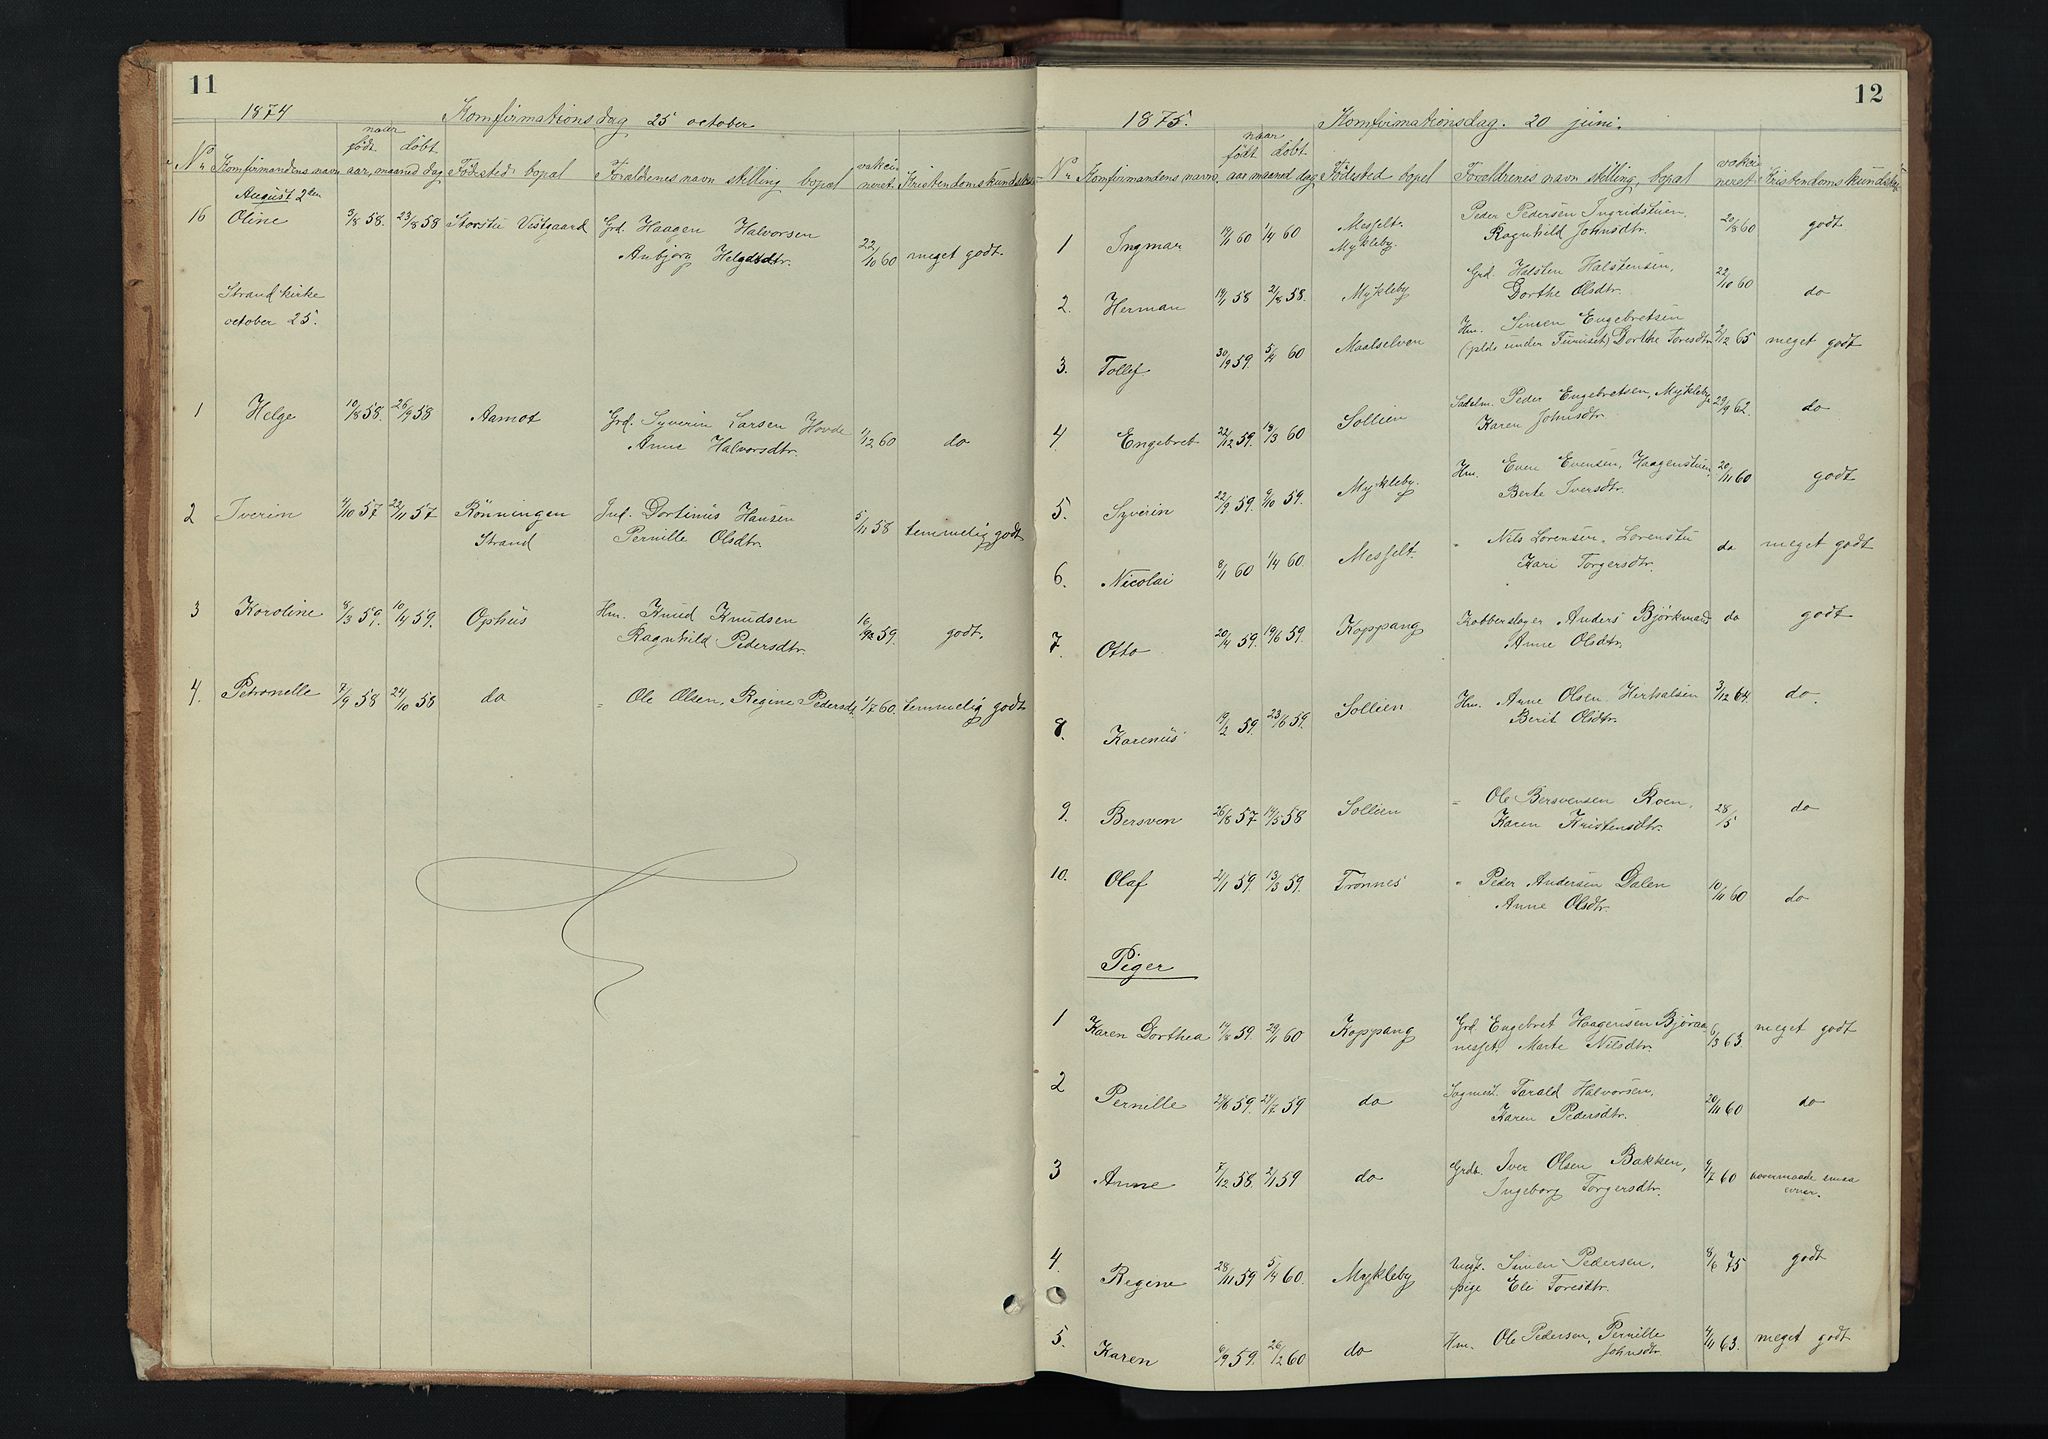 11
1874 Komfirmationsdag 25 october
naar
født døbt
No Komfirmandens navn aar, maaned dag Fødested bopæl Forældrenes navn stilling bopæl vakci-neret Kristendomskundsk
August 2den
16 Oline 3/8 58. 23/8 58 Storstu Vestgaard Grd. Haagen Halvorsen
Anbjørg Helgesdtr. 22/10 60 meget godt.
Strand kirke
october 25.
1 Helge 10/8 58. 26/9 58 Aamot Grd. Syverin Larsen Hovde
Anne Halvorsdtr. 1/12 60 do
2 Iverin 4/10 57 22/11 57 Rønningen Ind. Dortinus Hansen
Strand Pernille Olsdtr. 5/11 58 temmelig godt
3 Karoline 8/3 59. 10/4 59. Ophus Hm. Knud Knudsen
Ragnhild Pedersdtr. 16/12 59. godt.
4. Petronelle 7/9 58 24/10 58 do " Ole Olsen, Regine Pedersdt. 1/7 60. temmelig godt
12
1875. Komfirmationsdag. 20 juni.
naar
født døbt
Nr Komfirmandens navn. aar maaned dag Fødested bopel Forældrenes navn stilling, bopæl vakci-neret Kristendomskundska
1 Ingmar 19/1 60 1/4 60 Messelt. Mykleby. Peder Pedersen Ingridstuen.
Ragnhild Johnsdtr. 20/8 60 godt
2. Herman 19/1 58 2/8 58. Mykleby Grd. Halsten Halstensen,
Dorthe Olsdtr. 22/10 60 do
3. Tollef 30/9 59. 5/4 60 Maalselven Hm. Simen Engebretsen
(plds under Furuset) Dorthe Toresdtr. 2/12 65 meget godt
4. Engebret 22/12 59. 18/3 60 Sollien Sadelm. Peder Engebretsen, Mykleby
Karen Johnsdtr. 29/9 62. do
5. Syverin 22/9 59. 9/10 59. Mykleby. Hm. Even Evensen, Haagenstuen
Berte Iversdtr. 20/11 60 godt
6. Nicolai 8/1 60 1/4 60. Messelt. " Nils Lorensen. Lorenstu
Kari Torgersdtr. do meget godt
7. Otto 20/4 59. 19/6 59. Koppang Kobberslager Anders Bjørkmand
Anne Olsdtr. do godt
8. Karenus 19/2 59. 23/6 59. Sollien Hm. Arne Olsen Hirkalsen
Berit Olsdtr. 3/12 64. do.
9. Bersven 26/8 57 14/5 58 Sollien " Ole Bersvensen Roen,
Karen Kristensdtr. 28/5 do
10. Olaf 2/1 59. 13/3 59. Trønnes " Peder Andersen Dalen
Anne Olsdtr. 10/11 60 do
Piger
1 Karen Dorthea 14/8 59. 29/1 60 Koppang Grd. Engebret Haagensen Bjøraa
nesset. Marte Nilsdtr. 6/3 63. meget godt
2 Pernille 24/6 59. 24/7 59 do Sagmest. Tarald Halvorsen,
Karen Pedersdtr. 20/11 60 do
3 Anne 7/12 58. 2/1 59 do Grdb. Iver Olsen Bakken,
Ingeborg Torgersdtr. 9/7 60 overmaade smaa
evner.
4. Regine 28/11 59 5/4 60. Mykleby Ungk. Simen Pedersen,
pige Eli Toresdtr. 8/6 75 godt
5. Karen 6/9 59. 26/2 60 do Hm. Ole Pedersen, Pernille
Johnsdtr. 4/11 63. meget godt